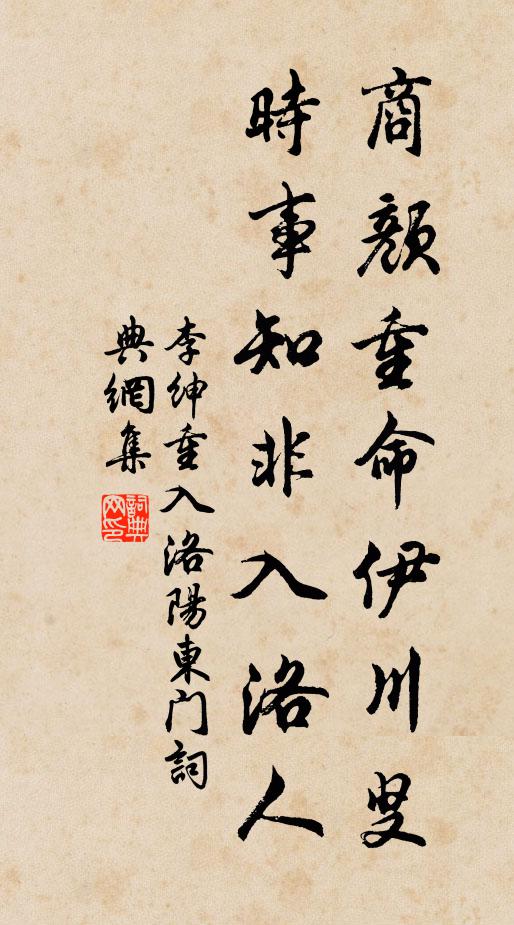 商顏重命伊川叟
時事知非入洛人
李紳重入洛陽東門詞
典網集
詞典網印